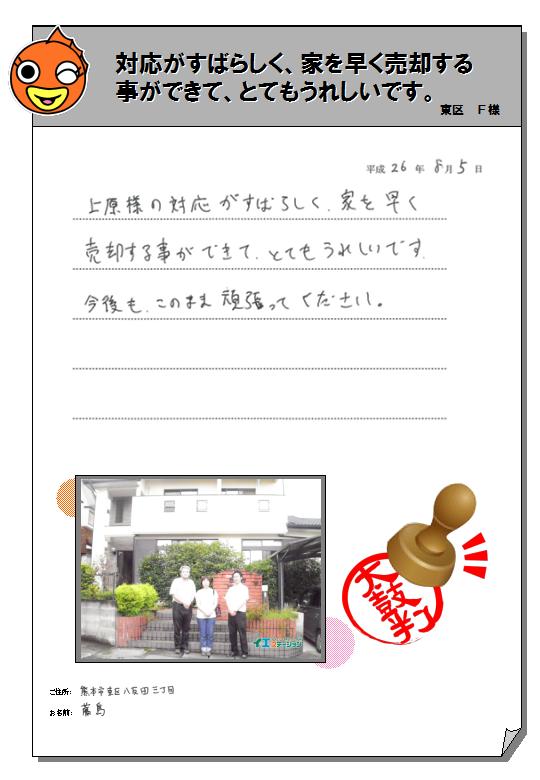 対応がすばらしく、家を早く売却する
事ができて、とてもうれしいです。
東区 F様
平成 26 年 8月 5 日
上原様の対応がすばらしく、家を早く
売却する事ができて、とてもうれしいです。
今後も、このまま頑張ってください。
イエステーション
太鼓判
ご住所: 熊本市東区八反田三丁目
お名前: